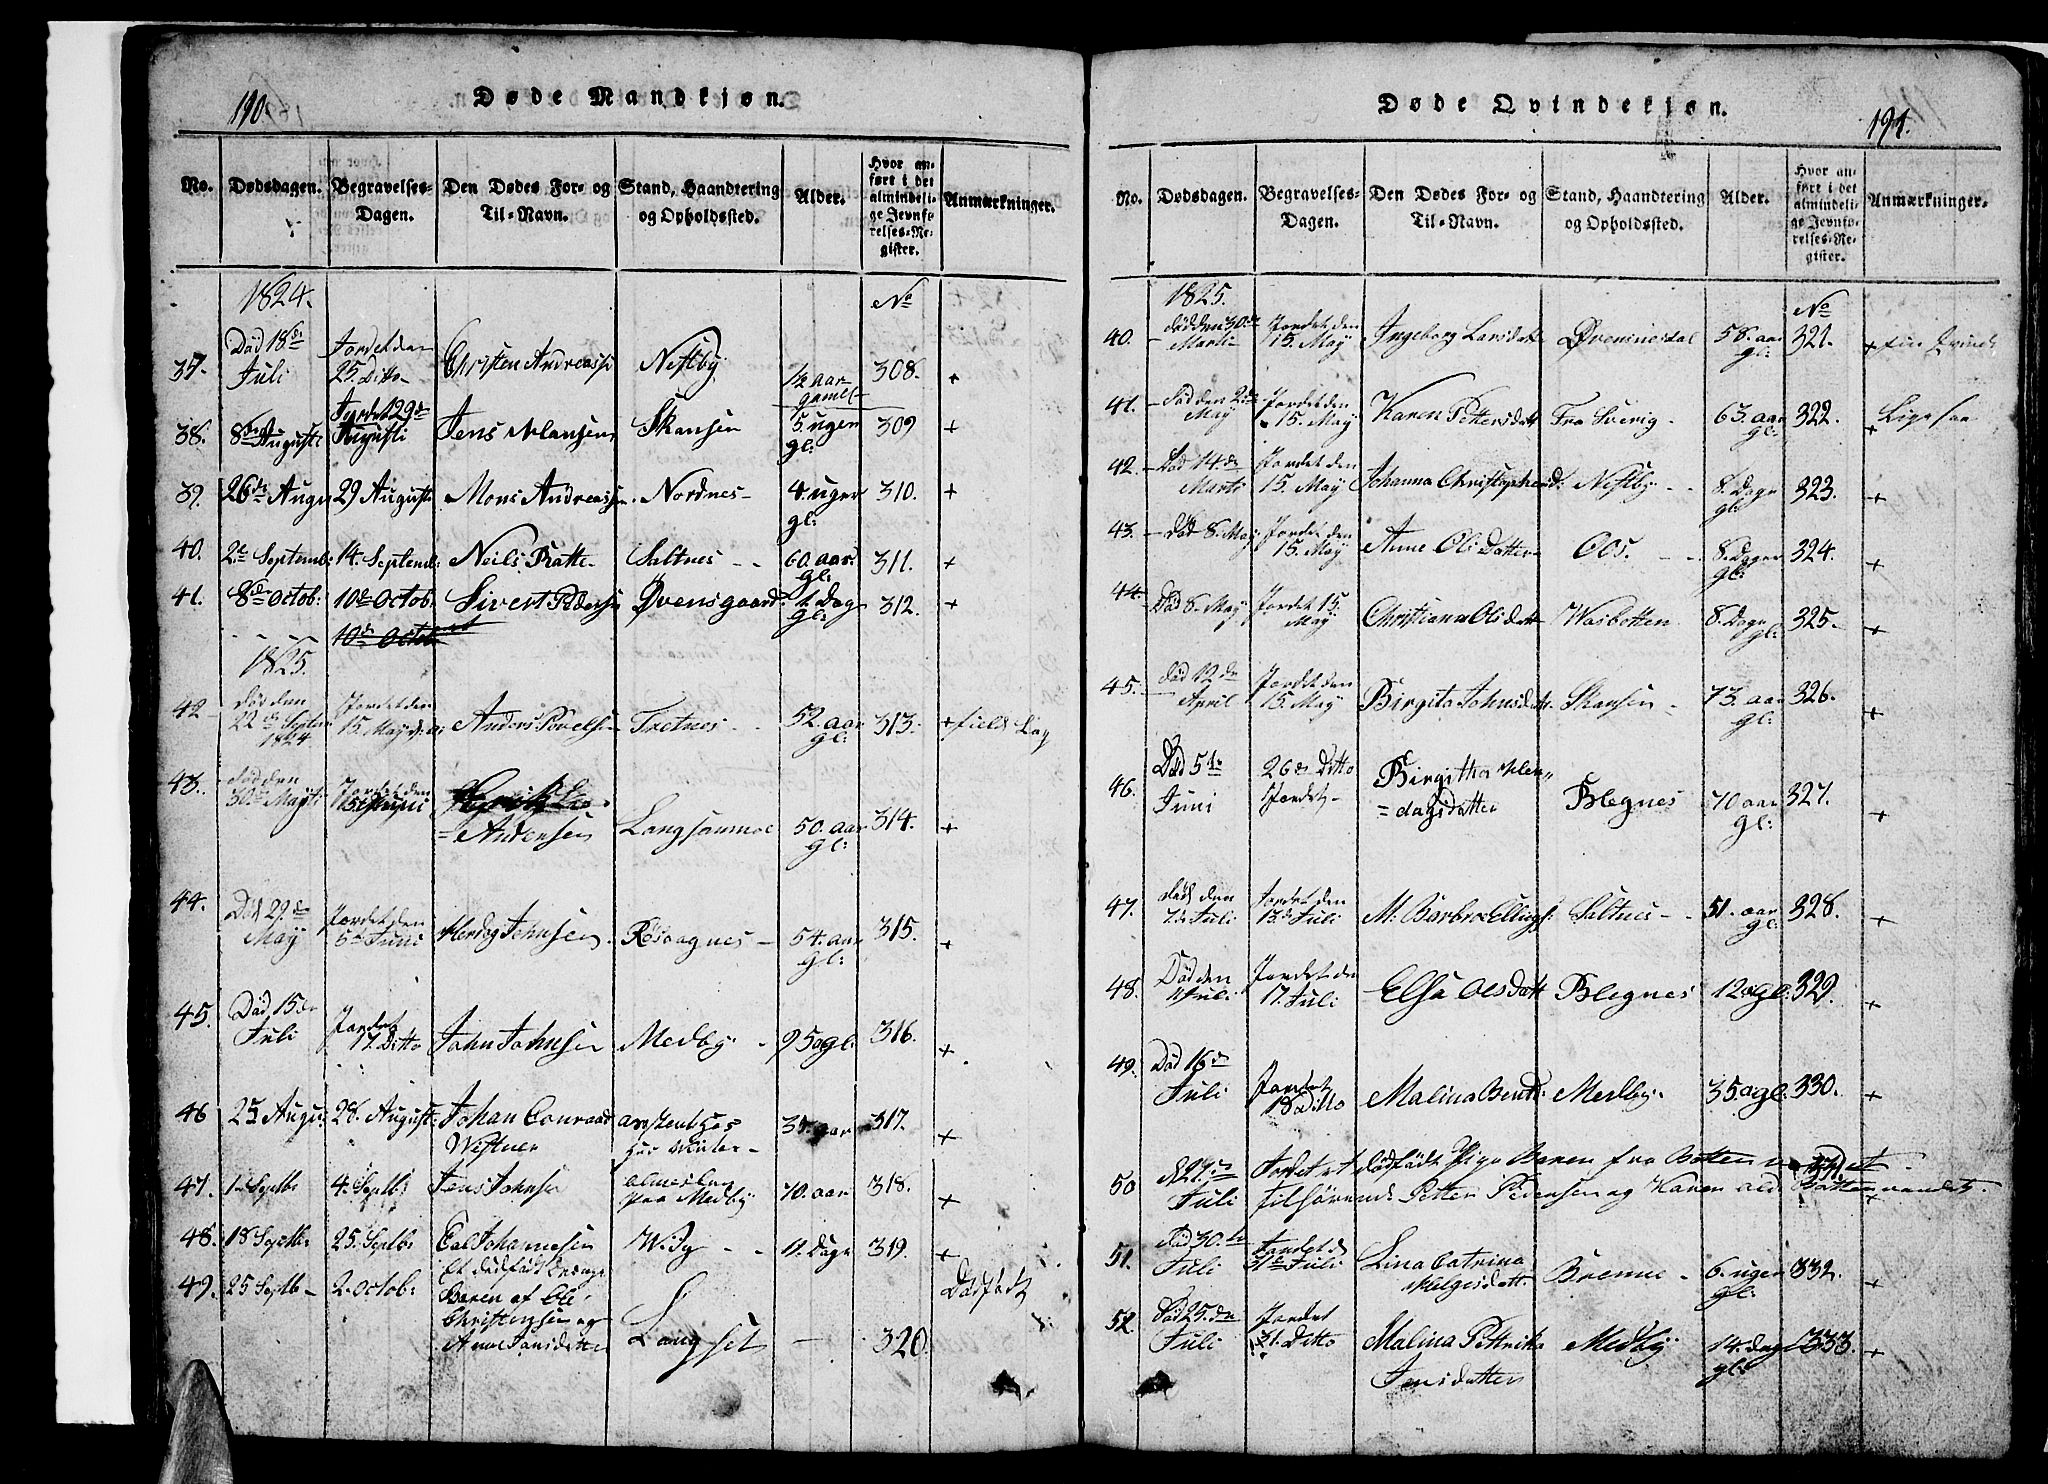 190.
Døde Mandkjøn.
No.
Dødsdagen.
Begravelses-
Dagen.
Den Dødes For- og
Til-Navn.
Stand, Haandtering
og Opholdssted.
Alder.
Hvor an-
ført i det
almindeli-
ge Jevnfø-
relses-Re-
gister.
Anmærkninger.
1824. No
37. Död 18de Juli Jordet den 25. Ditto Christen Andreass Nestby 1/2 aar gaml 308. +
38. 8de Augusti Jordet 29de Augusti Jens Skansen 5 uger gl: 309 +
39. 26de Augu 29 Augusti Mons Andreassen Nordnes 4. uger gl: 310. +
40. 2de Septemb: 14. Septemb: Neils Ratte Saltnes 60. aar gl: 311. +
41. 8de Octob: 10de Octob. Sivert Pedersen Øvensgaard 1. Dag gl: 312. +
10de Octob
1825.
42 död den 22de Septem 1824. Jordet den 15. May Anders Povelsen Tretnes 52. aar gl: 313. + field Lap
43. död den 30te Jordet den Andersen 50. aar gl: 314. +
44. Död 29de May Jordet den 5te Juni Johnsen 54. aar gl: 315. +
45. Död 15de Juli Jordet 17. Ditto John Johnsen Medby 95 gl: 316. +
46 25 Augus: 28. August: Johan Conraad Westner aar 317. +
47. 1. Septb 4. Septb: Jens Johnsen paa Medby 70. aar 318. +
48. 18 Septb: 25. Septb: Johannesen 11. Dage 319. +
49. 25 Septb 2. Octob: Et dödfödt Drenge
Baren af Ole
Christensen og
Langset 320. Dödfödt
Døde Qvindekjøn.
191.
No.
Dødsdagen.
Begravelses-
Dagen.
Den Dødes For- og
Til-Navn.
Stand, Haandtering
og Opholdssted.
Alder.
Hvor an-
ført i det
almindeli-
ge Jevnfø-
relses-Re-
gister.
Anmærkninger.
1825. No
40. död den 30de Marti Jordet den 15. May Ingeborg Larsdat Øvensnesdal 58. aar gl: 321. +
41. död den 2de May Jordet den 15. May Karen Pettersdatt Fra Sverig 63. aar gl: 322. + Lige saa
42. Död 14de Marti Jordet den 15. May Johanna Christophersd: Nestby 8. Dage gl: 323. +
43. Död 8. May Jordet den 15. May Anne Ols Datter Oos. 8. Dager gl: 324. +
44. Död 8. May Jordet 15. May Christianna Olsdatt Wasbotten 8. Dage gl: 325. +
45. död 12de April Jordet den 15. May Birgita Johnsdatt: Skansen 73. aar gl: 326. +
46. Död 5te Juni 26de Ditto Jordet Birgitha =dagsdatter Blegnes 70 aar gl: 327. +
47. död den 7de Juli Jordet den Juli M: Barbroe Saltnes 51. aar gl: 328. +
48. Död den Juli Jordet den 17. Juli Elsa Olsdatt Blegnes 12 gl: 329. +
49. Död 16de Juli Jordet 18 Ditto Malina Bentd: Medby 35 agl: 330. +
50 Juli Jordet et dödfödt Pige Baren fra Botten
tilhörende Petter Pedersen og Karen
51. Död 30te Juli Jordet d Juli Lina Catrina Helgesdatt: Brenne 6. uger gl: 332. +
52. Död 25de Juli Jordet 31. Ditto Malina Pettrika Jensdatter Medby 14. dage gl: 333. +